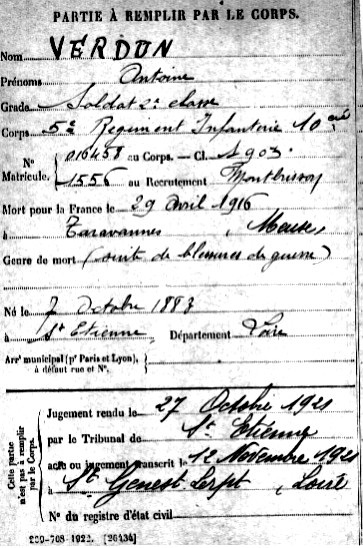 PARTIE À REMPLIR PAR LE CORPS.
Nom VERDUN
Prénoms Antoine
Grade Soldat 2e classe
Corps 5e Regiment Infanterie 10
N° Matricule. 016458 au Corps. — Cl. 1903
1556 au Recrutement Montbrison
Mort pour la France le 29 Avril 1916
à Taravannes, Meuse,
Genre de mort (suite de blessures de guerre)
Né le 7 Octobre 1883
à St Etienne, Département Loire
Arrt municipal (pr Paris et Lyon), à défaut rue et N°.
Cette partie n'est pas à remplir par le Corps.
Jugement rendu le 27 Octobre 1921
par le Tribunal de St Etienne
acte ou jugement transcrit le 12 Novembre 1921
à St Genest Lerpt, Loire
N° du registre d'état civil
1922. [26434]